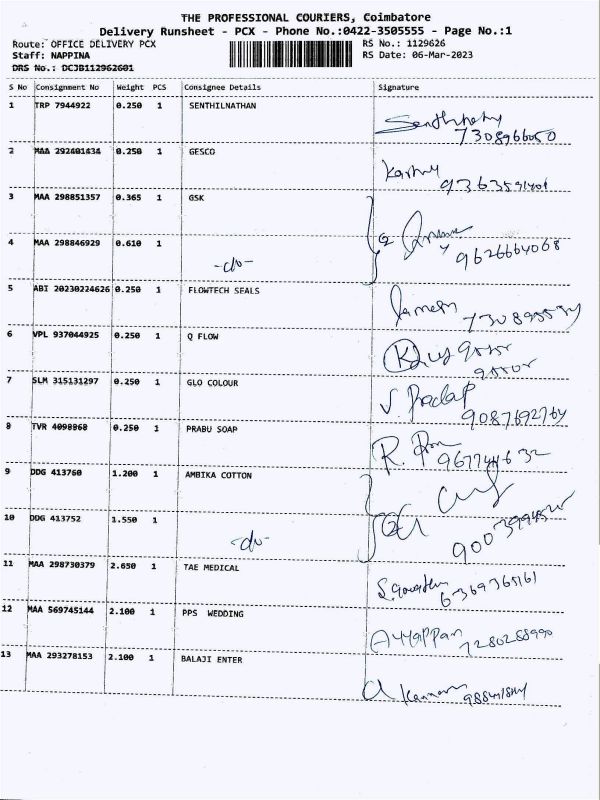 THE PROFESSIONAL COURIERS, Coimbatore
Delivery Runsheet - PCX - Phone No.:0422-3505555 - Page No.:1
Route: OFFICE DELIVERY PCX RS No.: 1129626
Staff: NAPPINA RS Date: 06-Mar-2023
DRS No.: DCJB112962601
S No Consignment No Weight PCS Consignee Details Signature
1 TRP 7944922 0.250 1 SENTHILNATHAN
7308966050
2 MAA 292401434 0.250 1 GESCO
9363591401
3 MAA 298851357 0.365 1 GSK
4 MAA 298846929 0.610 1
-do- 9626664068
5 ABI 20230224626 0.250 1 FLOWTECH SEALS
6 VPL 937044925 0.250 1 Q FLOW
7 SLM 315131297 0.250 1 GLO COLOUR
V. Pradap
9087692764
8 TVR 4098868 0.250 1 PRABU SOAP
R.
9 DDG 413760 1.200 1 AMBIKA COTTON
10 DDG 413752 1.550 1
-do-
11 MAA 298730379 2.650 1 TAE MEDICAL
6369365161
12 MAA 569745144 2.100 1 PPS WEDDING
Ayyappan 7280288990
13 MAA 293278153 2.100 1 BALAJI ENTER
Kannan